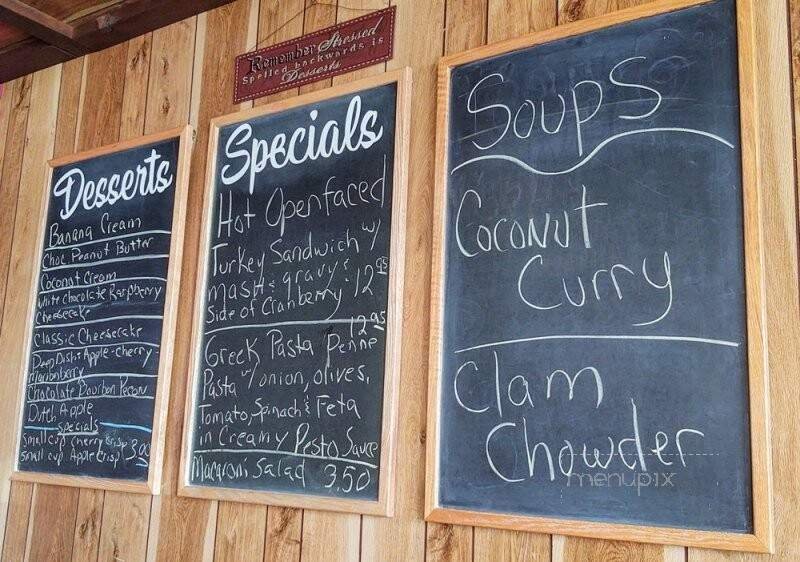 Remember Stressed
Spelled backwards is
Desserts
Desserts
Banana Cream
Choc Peanut Butter
Coconut Cream
White Chocolate Raspberry
Cheesecake
Classic Cheesecake
Deep Dish: Apple-cherry-
Marionberry
Chocolate Bourbon Pecan
Dutch Apple
specials
small cup cherry crisp 3.00
small cup Apple Crisp
Specials
Hot Openfaced
Turkey Sandwich w/
mash & gravy &
Side of Cranberry 12.95
Greek Pasta 12.95
Penne
Pasta w/ onion, olives,
Tomato, Spinach & Feta
in Creamy Pesto Sauce
Macaroni Salad 3.50
Soups
Coconut
Curry
Clam
Chowder
menupix